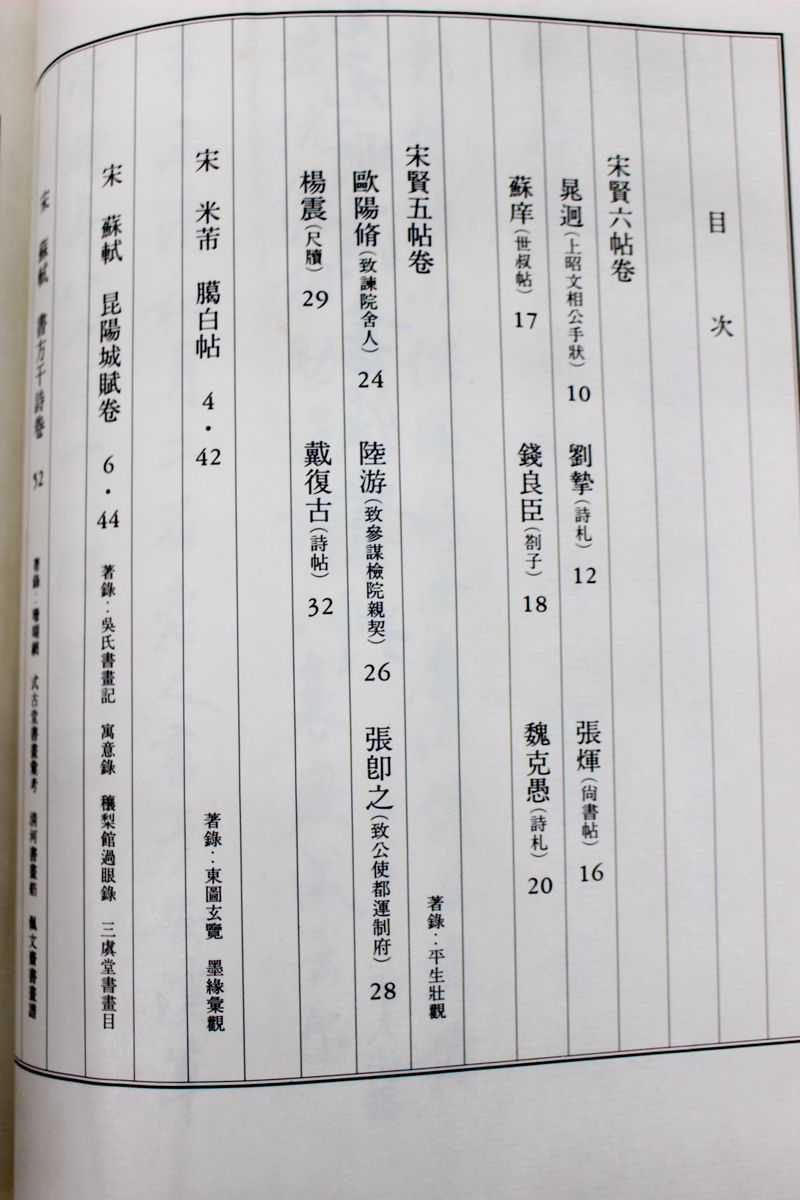 目次
宋賢六帖卷
晁迥（上昭文相公手狀） 10 劉摯（詩札） 12 張煇（尙書帖） 16
蘇庠（世叔帖） 17 錢良臣（劄子） 18 魏克愚（詩札） 20
宋賢五帖卷 著錄：平生壯觀
歐陽脩（致諫院舍人） 24 陸游（致參謀檢院親契） 26 張卽之（致公使都運制府） 28
楊震（尺牘） 29 戴復古（詩帖） 32
宋 米芾 臈白帖 4・42 著錄：東圖玄覽 墨緣彙觀
宋 蘇軾 昆陽城賦卷 6・44 著錄：吳氏書畫記 寓意錄 穰梨館過眼錄 三虞堂書畫目
宋 蘇軾 書方干詩卷 52 著錄：珊瑚網 式古堂書畫彙考 清河書畫舫 佩文齋書畫譜